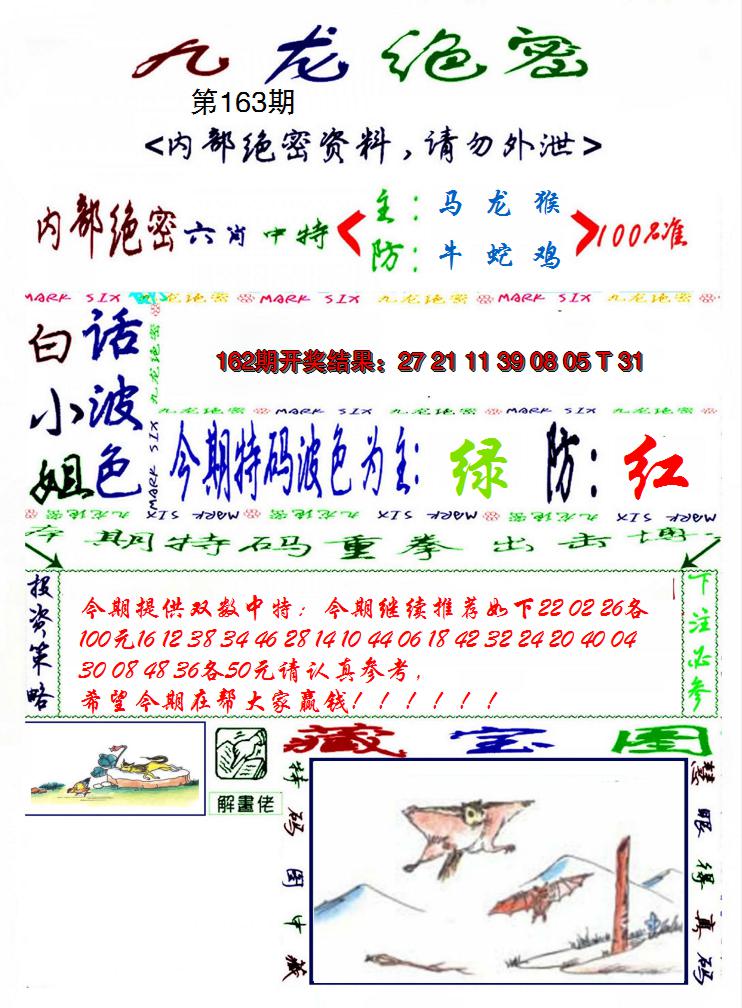 九龙绝密
第163期
<内部绝密资料,请勿外泄>
内部绝密六肖中特
主:马 龙 猴
防:牛 蛇 鸡
100%准
MARK SIX 九龙绝密 MARK SIX 九龙绝密 MARK SIX 九龙绝密
白小姐
话波色
九龙绝密 MARK SIX
162期开奖结果:27 21 11 39 08 05 T 31
九龙绝密 MARK SIX 九龙绝密 MARK SIX 九龙绝密
今期特码波色为主:绿 防:红
MARK SIX 九龙绝密 MARK SIX 九龙绝密 MARK SIX 九龙绝密
本期特码重拳出击博
投资策略
今期提供双数中特:今期继续推荐如下22 02 26各
100元16 12 38 34 46 28 14 10 44 06 18 42 32 24 20 40 04
30 08 48 36各50元请认真参考,
希望今期在帮大家赢钱!!!!!!
下注必参
解畫佬
藏宝图
特码图中藏
慧眼得真码